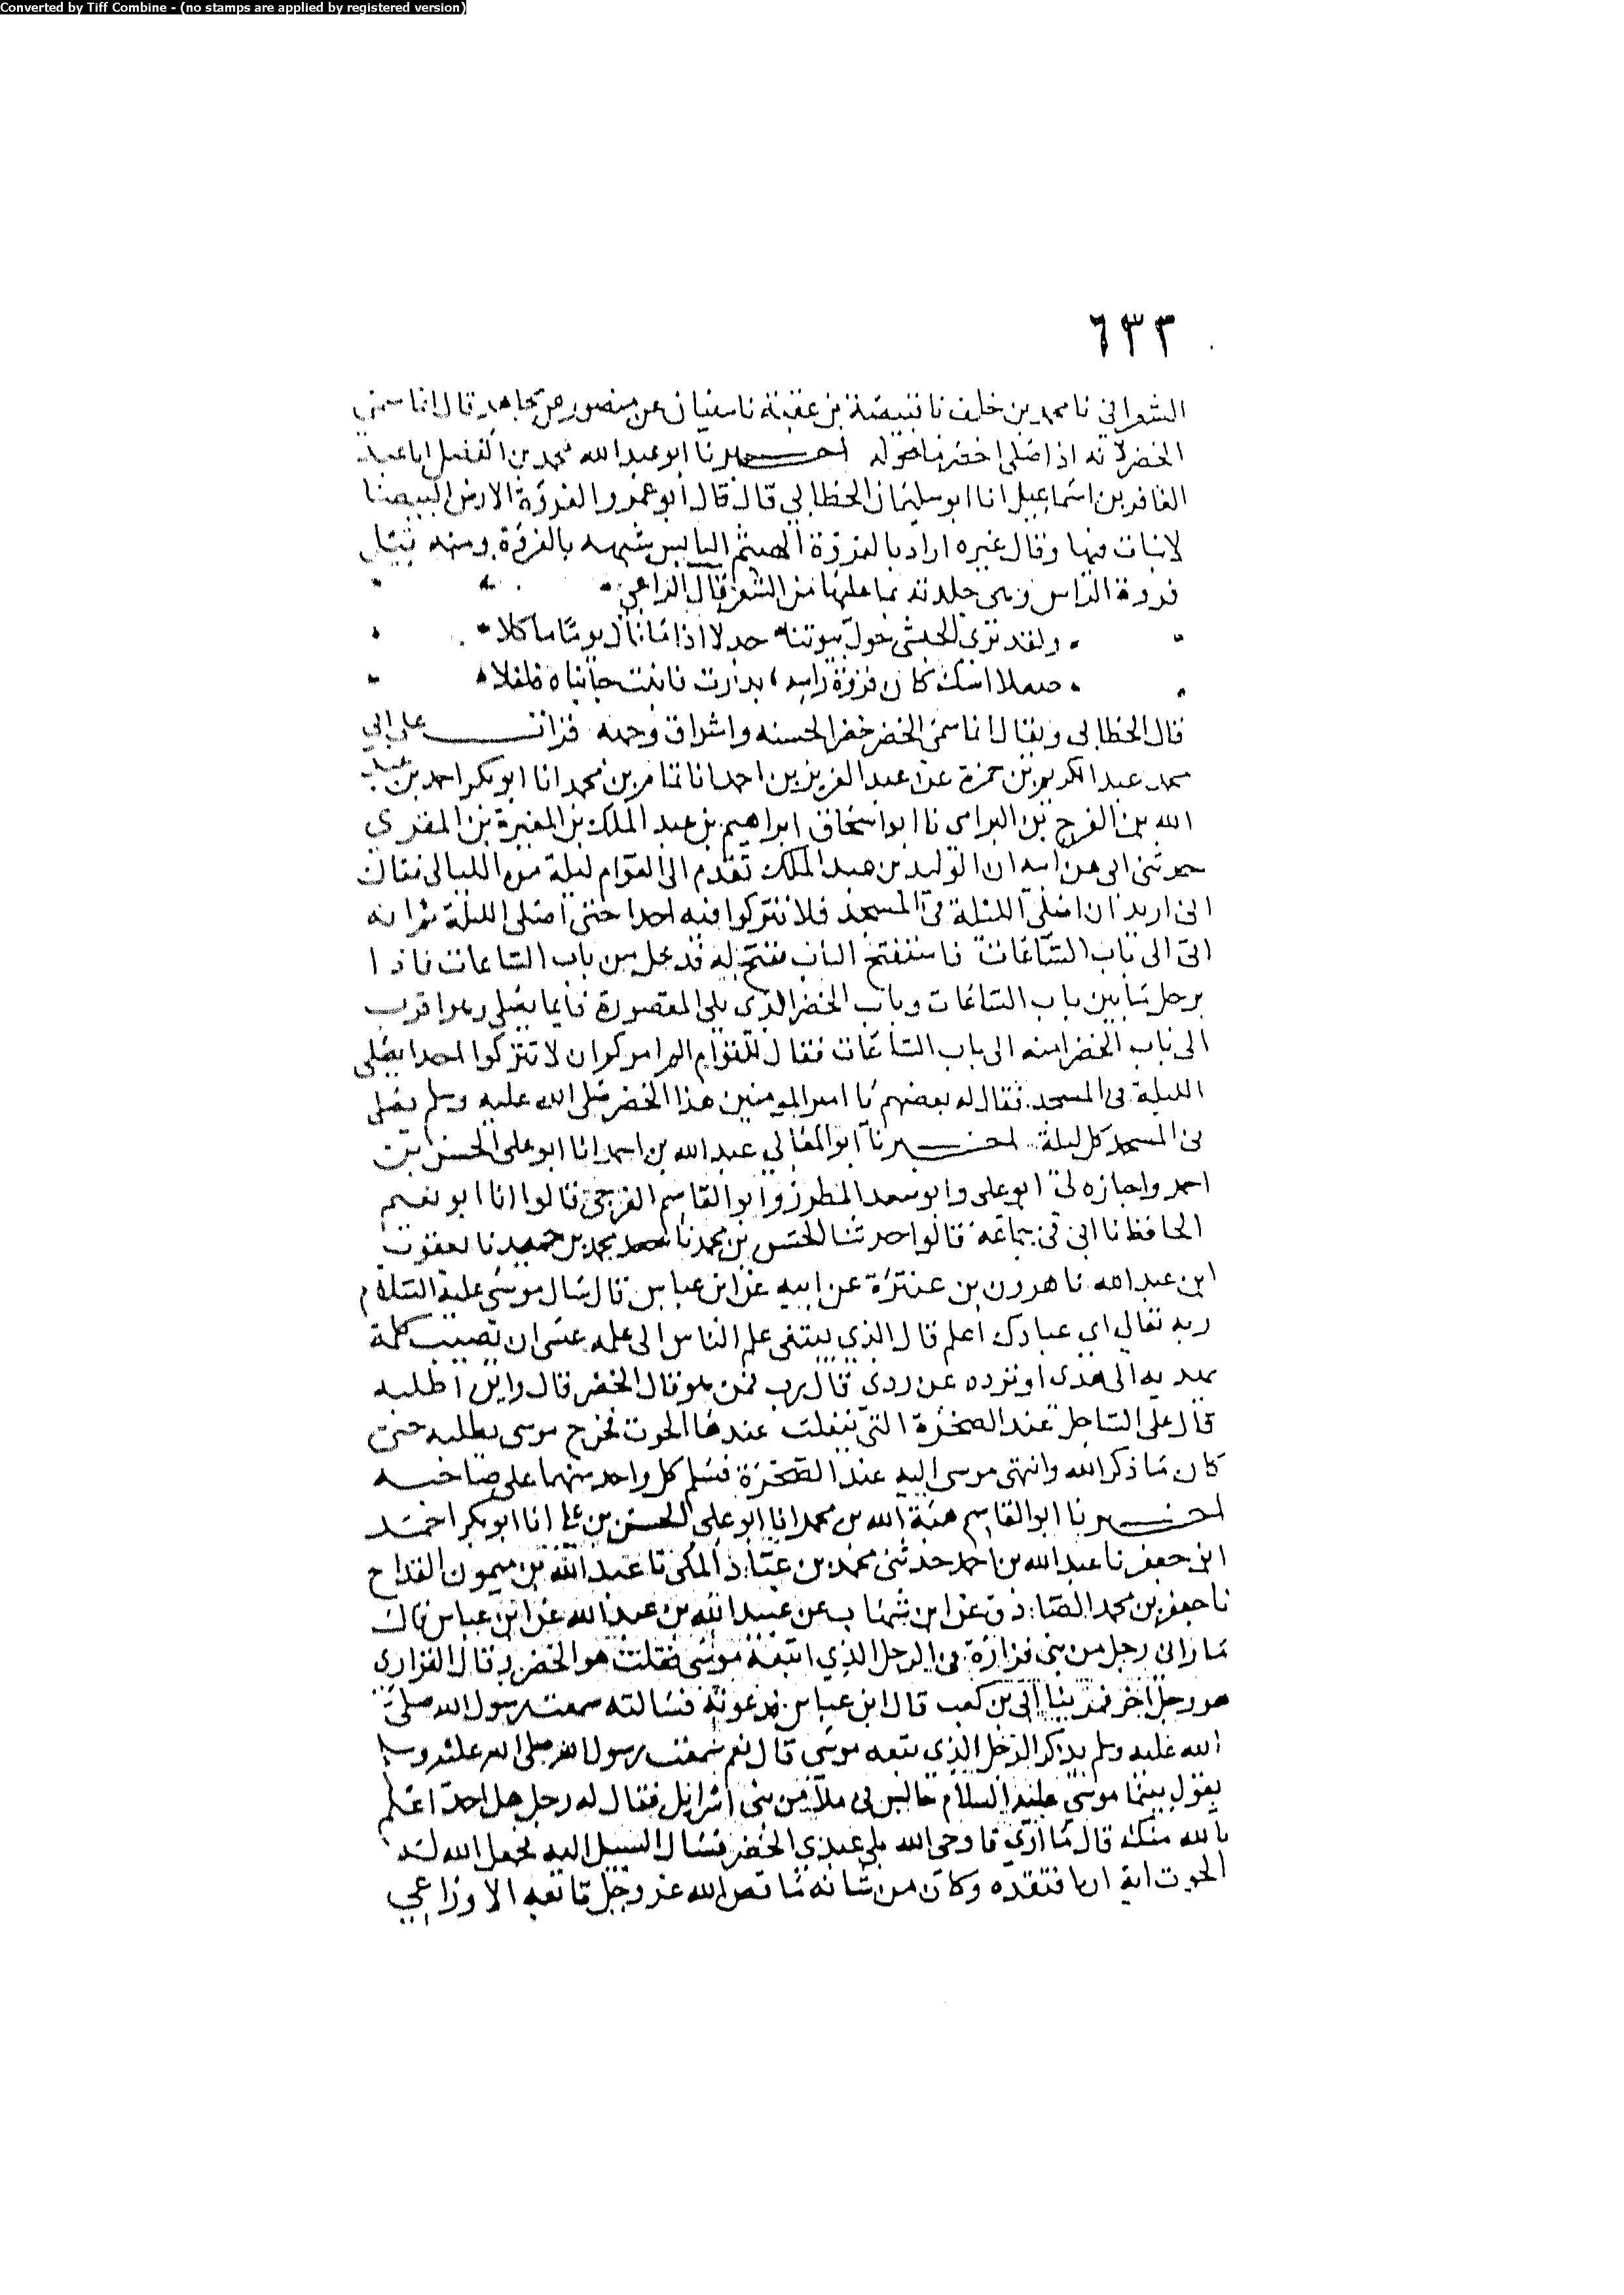 Converted by Tiff Combine - (no stamps are applied by registered version)
٦٣٢
الشعراني نا محمد بن خلف نا قبيصة بن عقبة نا سفيان عن منصور عن مجاهد قال انما سمي
الخضر لانه اذا صلى اخضر ما حوله اخبرنا ابو عبد الله محمد بن الفضل انا عبد
الغافر بن اسماعيل انا ابو سليمان الخطابي قال قال ابو عمرو الفروة الارض البيضا
لا نبات فيها وقال غيره اراد بالفروة الهشيم اليابس شبهه بالفروة ومنه قيل
فروة الراس وهي جلدته بما عليها من الشعر قال الراعي
ولقد ترى الحبشي حول بيوتنا جدلا اذا ما نال يوما ماكلا
صعلا اسك كان فروة راسه بذرت فانبت جانباه فلفلا
قال الخطابي ويقال انما سمي الخضر خضرا لحسنه واشراق وجهه قرات على ابي
محمد عبد الكريم بن حمزة عن عبد العزيز بن احمد انا تمام بن محمد انا ابو بكر احمد بن عبد
الله بن الفرج بن البرامي نا ابو اسحاق ابراهيم بن عبد الملك بن المغيرة بن المقري
حدثني ابي عن ابيه ان الوليد بن عبد الملك تقدم الى القوام ليلة من الليالي فقال
اني اريد ان اصلي الليلة في المسجد فلا تتركوا فيه احدا حتى اصلي الليلة ثم انه
اتى الى باب الساعات فاستفتح الباب ففتح له فدخل من باب الساعات فاذا
برجل ما بين باب الساعات وباب الخضرا الذي يلي المقصورة قايما يصلي وهو اقرب
الى باب الخضرا منه الى باب الساعات فقال للقوام الم امركم ان لا تتركوا احدا يصلي
الليلة في المسجد فقال له بعضهم يا امير المومنين هذا الخضر صلى الله عليه وسلم يصلي
في المسجد كل ليلة اخبرنا ابو المعالي عبد الله بن احمد انا ابو علي الحسن بن
احمد واجازه لي ابو علي وابو سعد المطرز وابو القاسم البرجي قالوا انا ابو نعيم
الحافظ نا ابي في جماعة قالوا حدثنا الحسن بن محمد نا محمد بن حميد نا يعقوب
ابن عبد الله نا هرون بن عنترة عن ابيه عن ابن عباس قال سال موسى عليه السلام
ربه تعالى اي عبادك اعلم قال الذي يبتغي علم الناس الى علمه عسى ان تصيب كلمة
تهديه الى هدى او ترده عن ردى قال رب فمن هو قال الخضر قال واين اطلبه
قال على الساحل عند الصخرة التي ينفلت عندها الحوت فخرج موسى يطلبه حتى
كان ما ذكر الله وانتهى موسى اليه عند الصخرة فسلم كل واحد منهما على صاحبه
اخبرنا ابو القاسم هبة الله بن محمد انا ابو علي الحسن بن علي انا ابو بكر احمد
ابن جعفر نا عبد الله بن احمد حدثني محمد بن عباد المكي نا عبد الله بن ميمون القداح
نا جعفر بن محمد الصادق عن ابن شهاب عن عبيد الله بن عبد الله عن ابن عباس قال
ماراني رجل من بني فزارة في الرجل الذي اتبعه موسى فقلت هو الخضر وقال الفزاري
هو رجل اخر فمر بنا ابي بن كعب قال ابن عباس فدعوته فسالته سمعت رسول الله صلى
الله عليه وسلم يذكر الرجل الذي تبعه موسى قال نعم سمعت رسول الله صلى الله عليه وسلم
يقول بينما موسى عليه السلام جالس في ملا من بني اسرايل فقال له رجل هل احد اعلم
بالله منك قال ما ارى فاوحى الله بلى عبدي الخضر فسال السبيل اليه فجعل الله له
الحوت اية ان افتقده وكان من شانه ما قص الله عز وجل تابعه الاوزاعي